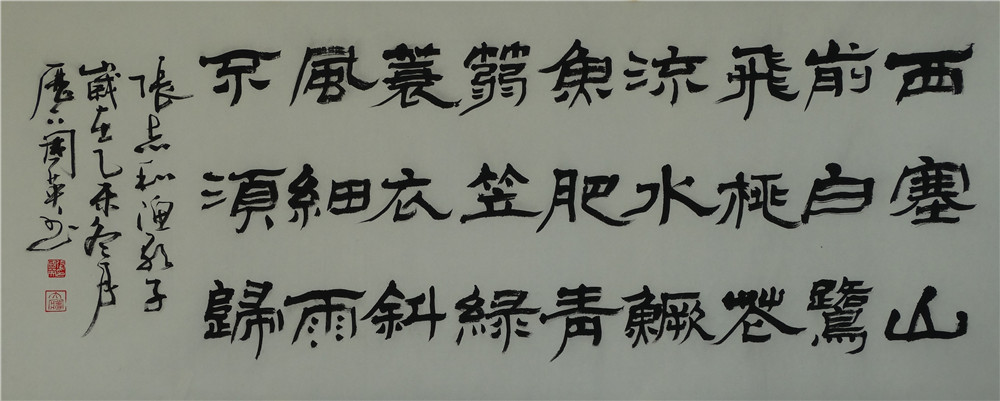 西塞山
前白鷺
飛桃花
流水鱖
魚肥青
篛笠綠
蓑衣斜
風細雨
不須歸
張志和漁歌子
歲在乙未冬月
歷下